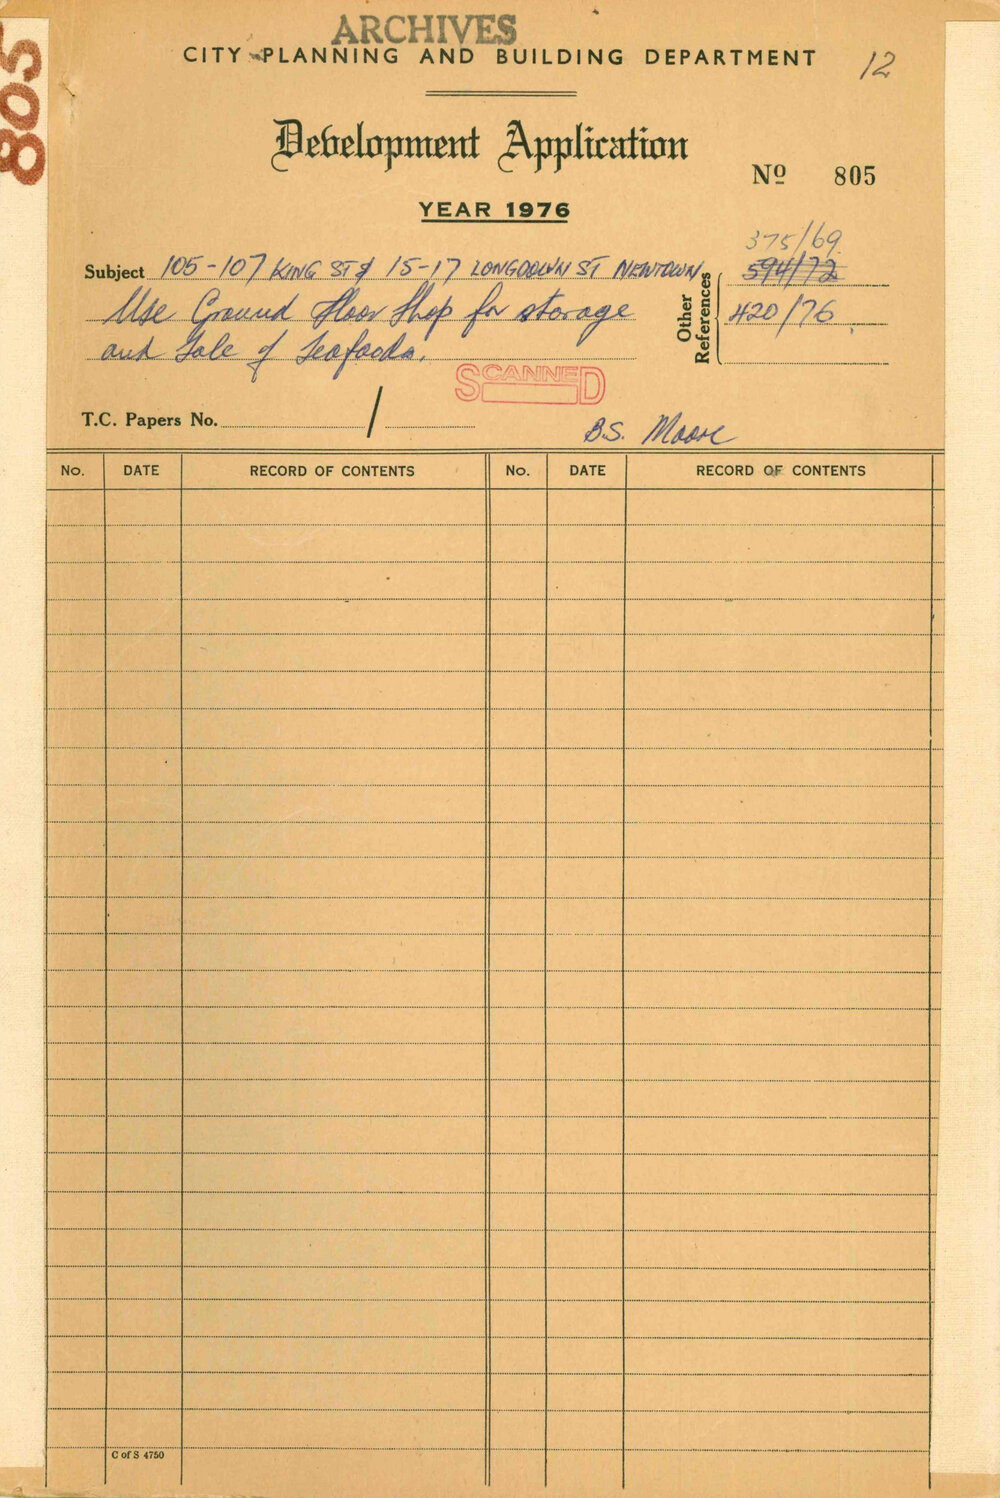 805
ARCHIVES
CITY PLANNING AND BUILDING DEPARTMENT
12
Development Application
Nº 805
YEAR 1976
Subject 105-107 KING ST & 15-17 LONGDOWN ST NEWTOWN
Use Ground Floor Shop for storage
and Sale of Seafoods.
Other References
375/69
594/72
420/76
SCANNED
T.C. Papers No. /
B.S. Moore
No. DATE RECORD OF CONTENTS No. DATE RECORD OF CONTENTS
C of S 4750